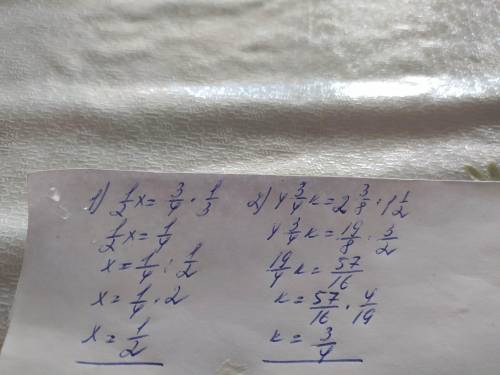 1) 1/2 x = 3/4 · 1/3
1/2 x = 1/4
x = 1/4 : 1/2
x = 1/4 · 2
x = 1/2
2) 4 3/4 k = 2 3/8 · 1 1/2
4 3/4 k = 19/8 · 3/2
19/4 k = 57/16
k = 57/16 · 4/19
k = 3/4